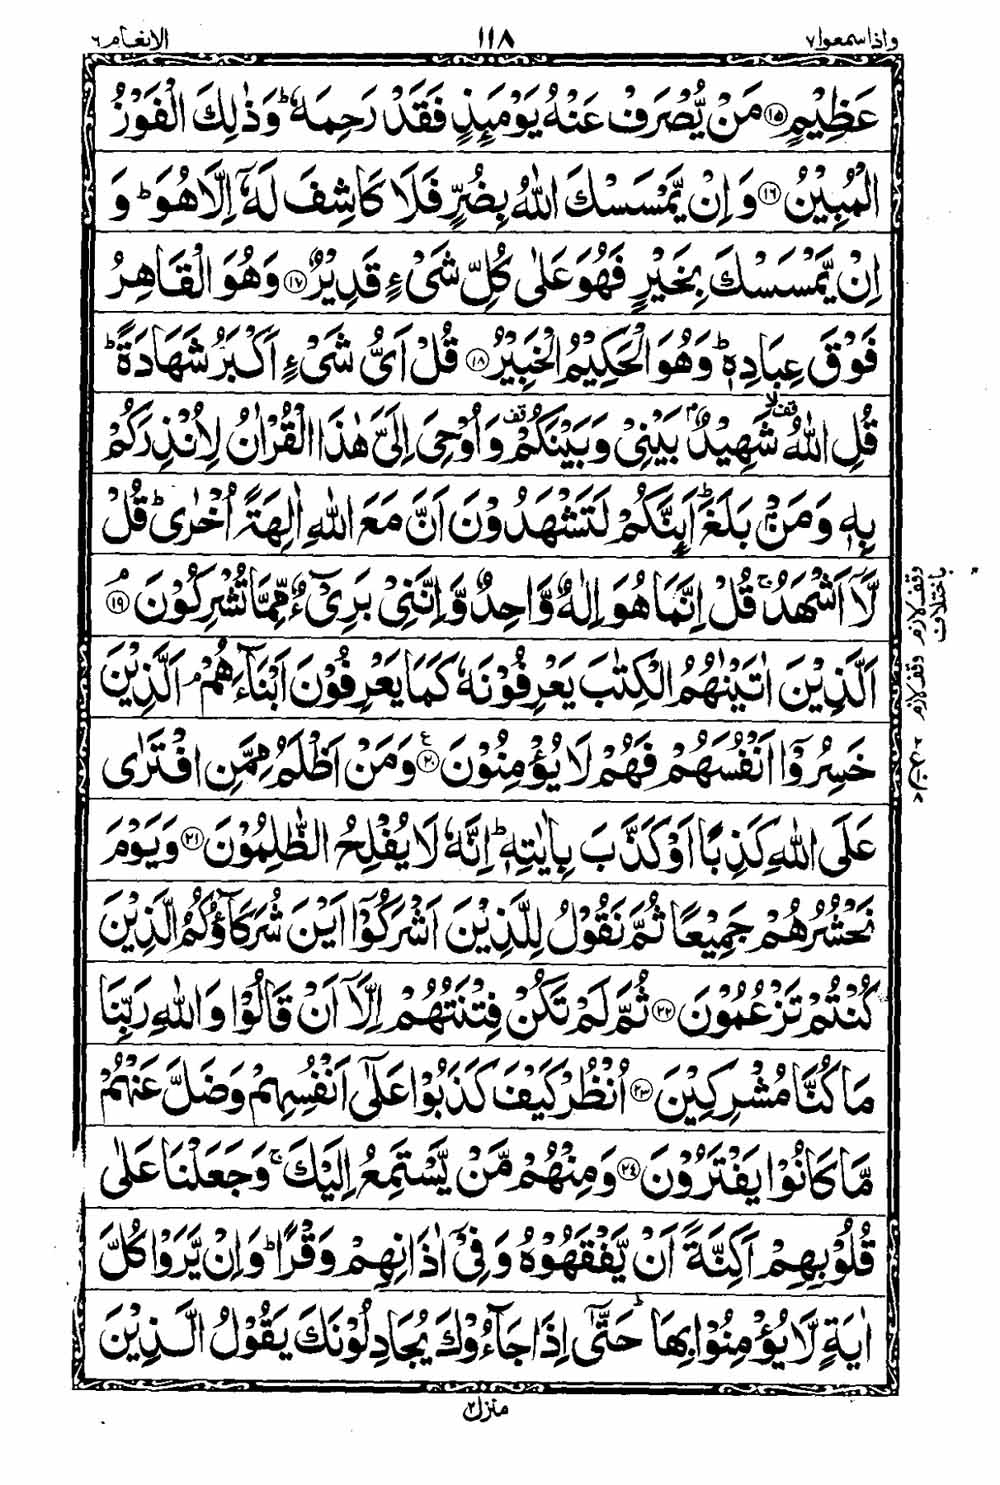 واذاسمعوا۷ ۱۱۸ الانعام ۶
عَظِيۡمٍ ﴿۱۵﴾ مَنۡ يُّصۡرَفۡ عَنۡهُ يَوۡمَٮِٕذٍ فَقَدۡ رَحِمَهٗ ؕ وَ ذٰ لِكَ الۡفَوۡزُ
الۡمُبِيۡنُ ﴿۱۶﴾ وَ اِنۡ يَّمۡسَسۡكَ اللّٰهُ بِضُرٍّ فَلَا كَاشِفَ لَهٗۤ اِلَّا هُوَ ؕ وَ
اِنۡ يَّمۡسَسۡكَ بِخَيۡرٍ فَهُوَ عَلٰى كُلِّ شَىۡءٍ قَدِيۡرٌ ﴿۱۷﴾ وَهُوَ الۡقَاهِرُ
فَوۡقَ عِبَادِهٖ ؕ وَهُوَ الۡحَكِيۡمُ الۡخَبِيۡرُ ﴿۱۸﴾ قُلۡ اَىُّ شَىۡءٍ اَكۡبَرُ شَهَادَةً ؕ
قُلِ اللّٰهُ قف لا شَهِيۡدٌ ۢ بَيۡنِىۡ وَبَيۡنَكُمۡ قف وَاُوۡحِىَ اِلَىَّ هٰذَا الۡقُرۡاٰنُ لِاُنۡذِرَكُمۡ
بِهٖ وَمَنۡۢ بَلَغَ ؕ اَٮِٕنَّكُمۡ لَتَشۡهَدُوۡنَ اَنَّ مَعَ اللّٰهِ اٰلِهَةً اُخۡرٰى ؕ قُلْ
لَّاۤ اَشۡهَدُ ۚ قُلۡ اِنَّمَا هُوَ اِلٰـهٌ وَّاحِدٌ وَّاِنَّنِىۡ بَرِىۡٓءٌ مِّمَّا تُشۡرِكُوۡنَ ﴿۱۹﴾ ۘ
اَلَّذِيۡنَ اٰتَيۡنٰهُمُ الۡكِتٰبَ يَعۡرِفُوۡنَهٗ كَمَا يَعۡرِفُوۡنَ اَبۡنَآءَهُمۡ ۘ اَلَّذِيۡنَ
خَسِرُوۡۤا اَنۡفُسَهُمۡ فَهُمۡ لَا يُؤۡمِنُوۡنَ ﴿۲۰﴾ ع وَمَنۡ اَظۡلَمُ مِمَّنِ افۡتَرٰى
عَلَى اللّٰهِ كَذِبًا اَوۡ كَذَّبَ بِاٰيٰتِهٖ ؕ اِنَّهٗ لَا يُفۡلِحُ الظّٰلِمُوۡنَ ﴿۲۱﴾ وَيَوۡمَ
نَحۡشُرُهُمۡ جَمِيۡعًا ثُمَّ نَقُوۡلُ لِلَّذِيۡنَ اَشۡرَكُوۡۤا اَيۡنَ شُرَكَآؤُكُمُ الَّذِيۡنَ
كُنۡتُمۡ تَزۡعُمُوۡنَ ﴿۲۲﴾ ثُمَّ لَمۡ تَكُنۡ فِتۡنَتُهُمۡ اِلَّاۤ اَنۡ قَالُوۡا وَاللّٰهِ رَبِّنَا
مَا كُنَّا مُشۡرِكِيۡنَ ﴿۲۳﴾ اُنْظُرۡ كَيۡفَ كَذَبُوۡا عَلٰٓى اَنۡفُسِهِمۡ وَضَلَّ عَنۡهُمۡ
مَّا كَانُوۡا يَفۡتَرُوۡنَ ﴿۲۴﴾ وَمِنۡهُمۡ مَّنۡ يَّسۡتَمِعُ اِلَيۡكَ ۚ وَجَعَلۡنَا عَلٰى
قُلُوۡبِهِمۡ اَكِنَّةً اَنۡ يَّفۡقَهُوۡهُ وَفِىۡۤ اٰذَانِهِمۡ وَقۡرًا ؕ وَاِنۡ يَّرَوۡا كُلَّ
اٰيَةٍ لَّا يُؤۡمِنُوۡا بِهَا ؕ حَتّٰٓى اِذَا جَآءُوۡكَ يُجَادِلُوۡنَكَ يَقُوۡلُ الَّذِيۡنَ
وقف لازم
باختلاف
وقف لازم
منزل۲